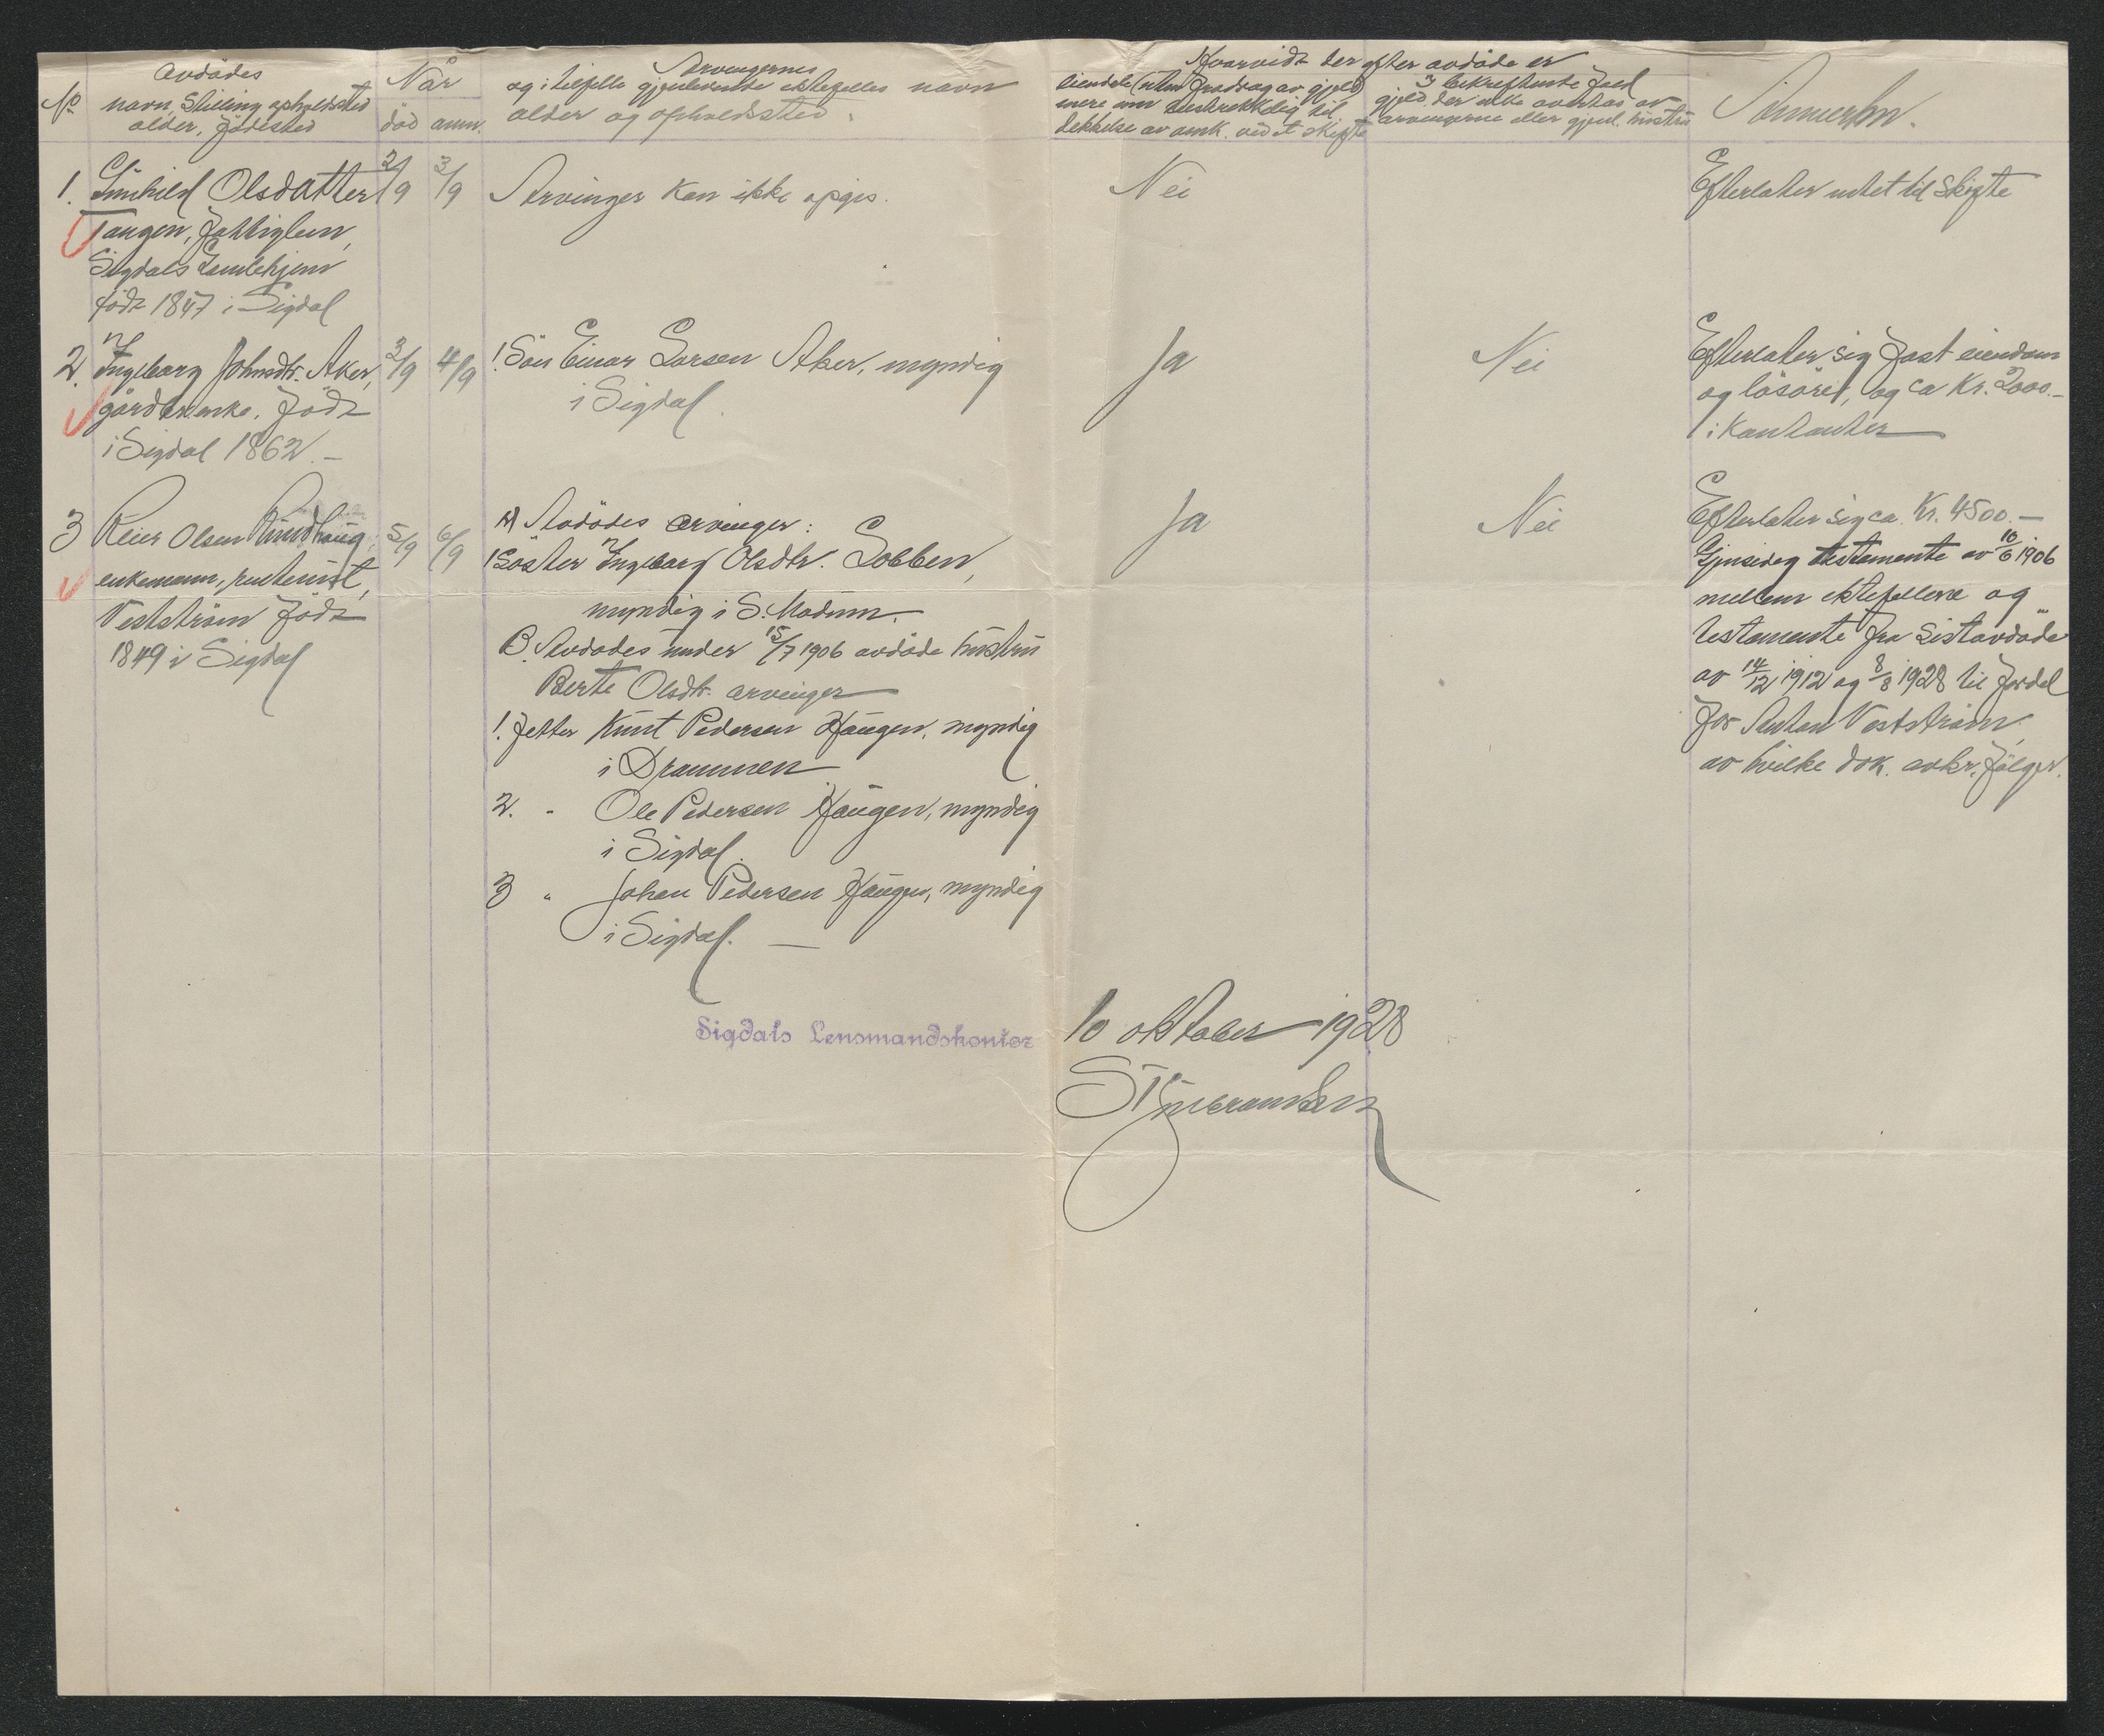 No
Avdødes
navn, Stilling opholdssted
alder, fødested
Når
død anm.
Arvingernes
og i tilfelle gjenlevende ektefelles navn
alder og opholdssted.
Hvorvidt der efter avdøde er
eiendele (uten fradrag av gjeld)
mere enn tilstrekkelig til
dekkelse av omk. ved et skifte
i bekreftende fald
gjeld der ikke overtas av
arvingerne eller gjenl. hustru
Anmerkn.
1. Gunhild Olsdatter 2/9 3/9 Arvinger kan ikke opgis. Nei Efterlater intet til skifte
Tangen, fattiglem,
Sigdals Gamlehjem
født 1847 i Sigdal
2. Ingeborg Johnsdtr. Aker, 3/9 4/9 1. Søn Einar Larsen Aker, myndig Ja Nei Efterlater sig fast eiendom
gårdbr.enke. født i Sigdal. og løsøre, og ca Kr. 2000.-
i Sigdal 1862.- i kontanter
3 Reier Olsen Rudhaug, 5/9 6/9 A) Avdødes arvinger: Ja Nei Efterlater sig ca. Kr. 4500.-
enkemann, rentenist, 1 Søster Ingeborg Olsdtr. Lobben, Gjensidig testamente av 10/6 1906
Vestström født myndig i S. Modum. mellem ektefellene og
1849 i Sigdal B. Avdødes under 15/7 1906 avdøde hustru testamente fra sistavdøde
Berte Olsdtr. arvinger av 14/12 1912 og 8/8 1928 til fordel
1. fetter Knut Pedersen Haugen, myndig for Anton Vestström,
i Drammen av hvilke dok. avkr. følger.
2. " Ole Pedersen Haugen, myndig
i Sigdal.
3 " Johan Pedersen Haugen, myndig
i Sigdal. —
Sigdals Lensmandskontor 10 oktober 1928